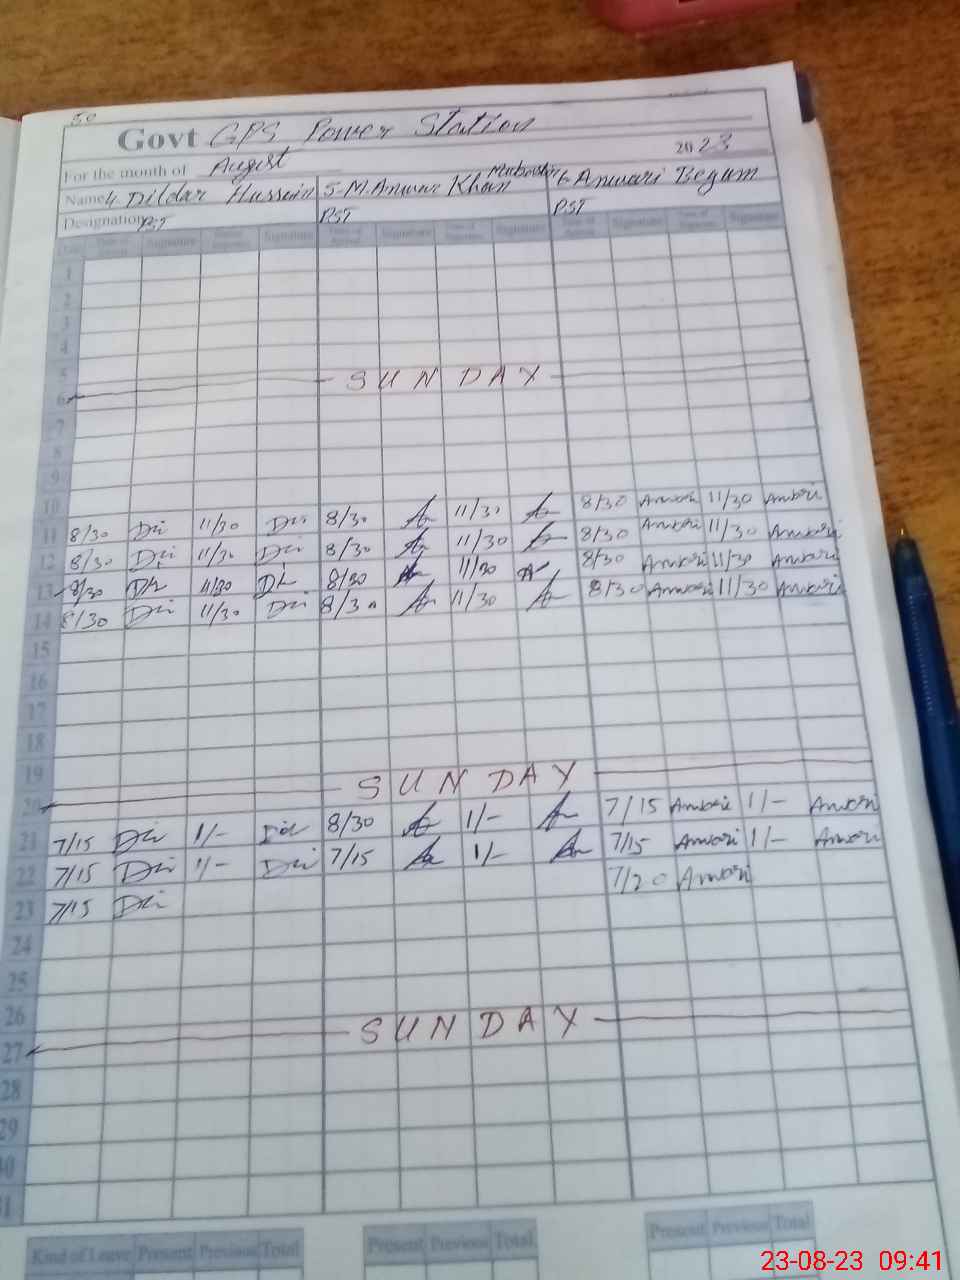 50
Govt GPS Power Station
For the month of August 2023
Name 4. Dildar Hussein 5-M. Anwar Khan 6. Anwari Begum
Designation PST PST
Signature Signature Signature Signature Signature Signature
1
2
3
4
5
SUNDAY
6
7
8
9
10
8/30 Anwari 11/30 Anwari
11 8/30 Dil 11/30 Dil 8/30 11/30
8/30 Anwari 11/30 Anwari
12 8/30 Dil 11/30 Dil 8/30 11/30
8/30 Anwari 11/30 Anwari
13 8/30 Dil 11/30 Dil 8/30 11/30
8/30 Anwari 11/30 Anwari
14 8/30 Dil 11/30 Dil 8/30 11/30
15
16
17
18
19
SUNDAY
20
7/15 Anwari 1/- Anwari
21 7/15 Dil 1/- Dil 8/30 1/-
7/15 Anwari 1/- Anwari
22 7/15 Dil 1/- Dil 7/15 1/-
7/20 Anwari
23 7/15 Dil
24
25
26
SUNDAY
27
28
29
30
31
Kind of Leave Present Previous Total Present Previous Total Present Previous Total
23-08-23 09:41